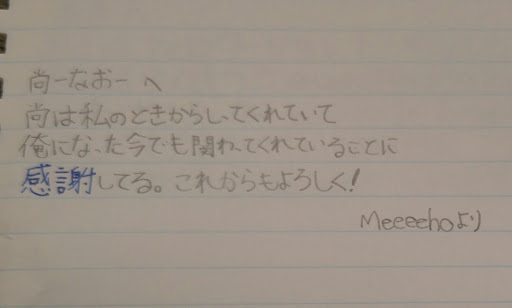 尚ーなおー へ
尚は私のときからしってくれていて
俺になった今でも関わってくれていることに
感謝してる。これからもよろしく!
Meeeehoより